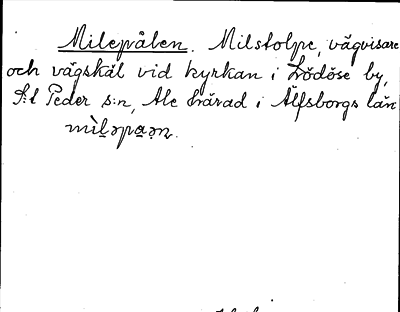 Milepålen. Milstolpe, vägvisare
och vägskäl vid kyrkan i Lödöse by,
S:t Peder s:n, Ale härad i Älfsborgs län